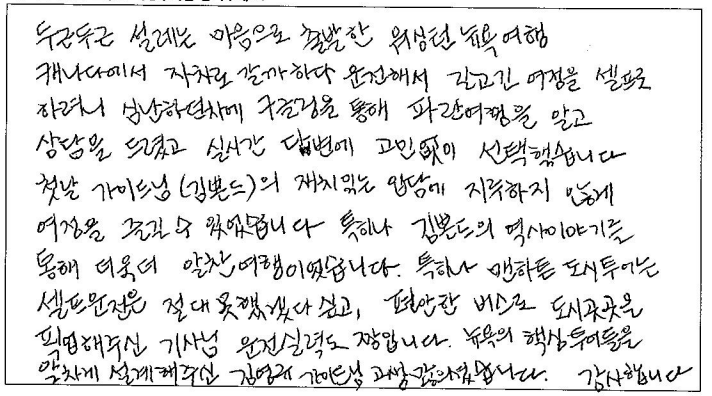 두근두근 설레는 마음으로 출발한 워싱턴 뉴욕여행
캐나다에서 자차로 갈까하다 운전해서 길고긴 여정을 셀프로
하려니 심난하던차에 구글링을 통해 파란여행을 알고
상담을 드렸고 실시간 답변에 고민없이 선택했습니다
첫날 가이드님(김본드)의 재치있는 입담에 지루하지 않게
여정을 즐길 수 있었습니다 특히나 김본드의 역사이야기를
통해 더욱더 알찬여행이었습니다. 특히나 맨하튼 도시투어는
셀프운전은 절대못했겠다싶고, 편안한 버스로 도시곳곳을
픽업해주신 기사님 운전실력도 짱입니다. 뉴욕의 핵심투어들을
알차게 설계해주신 가이드님 습니다. 감사합니다